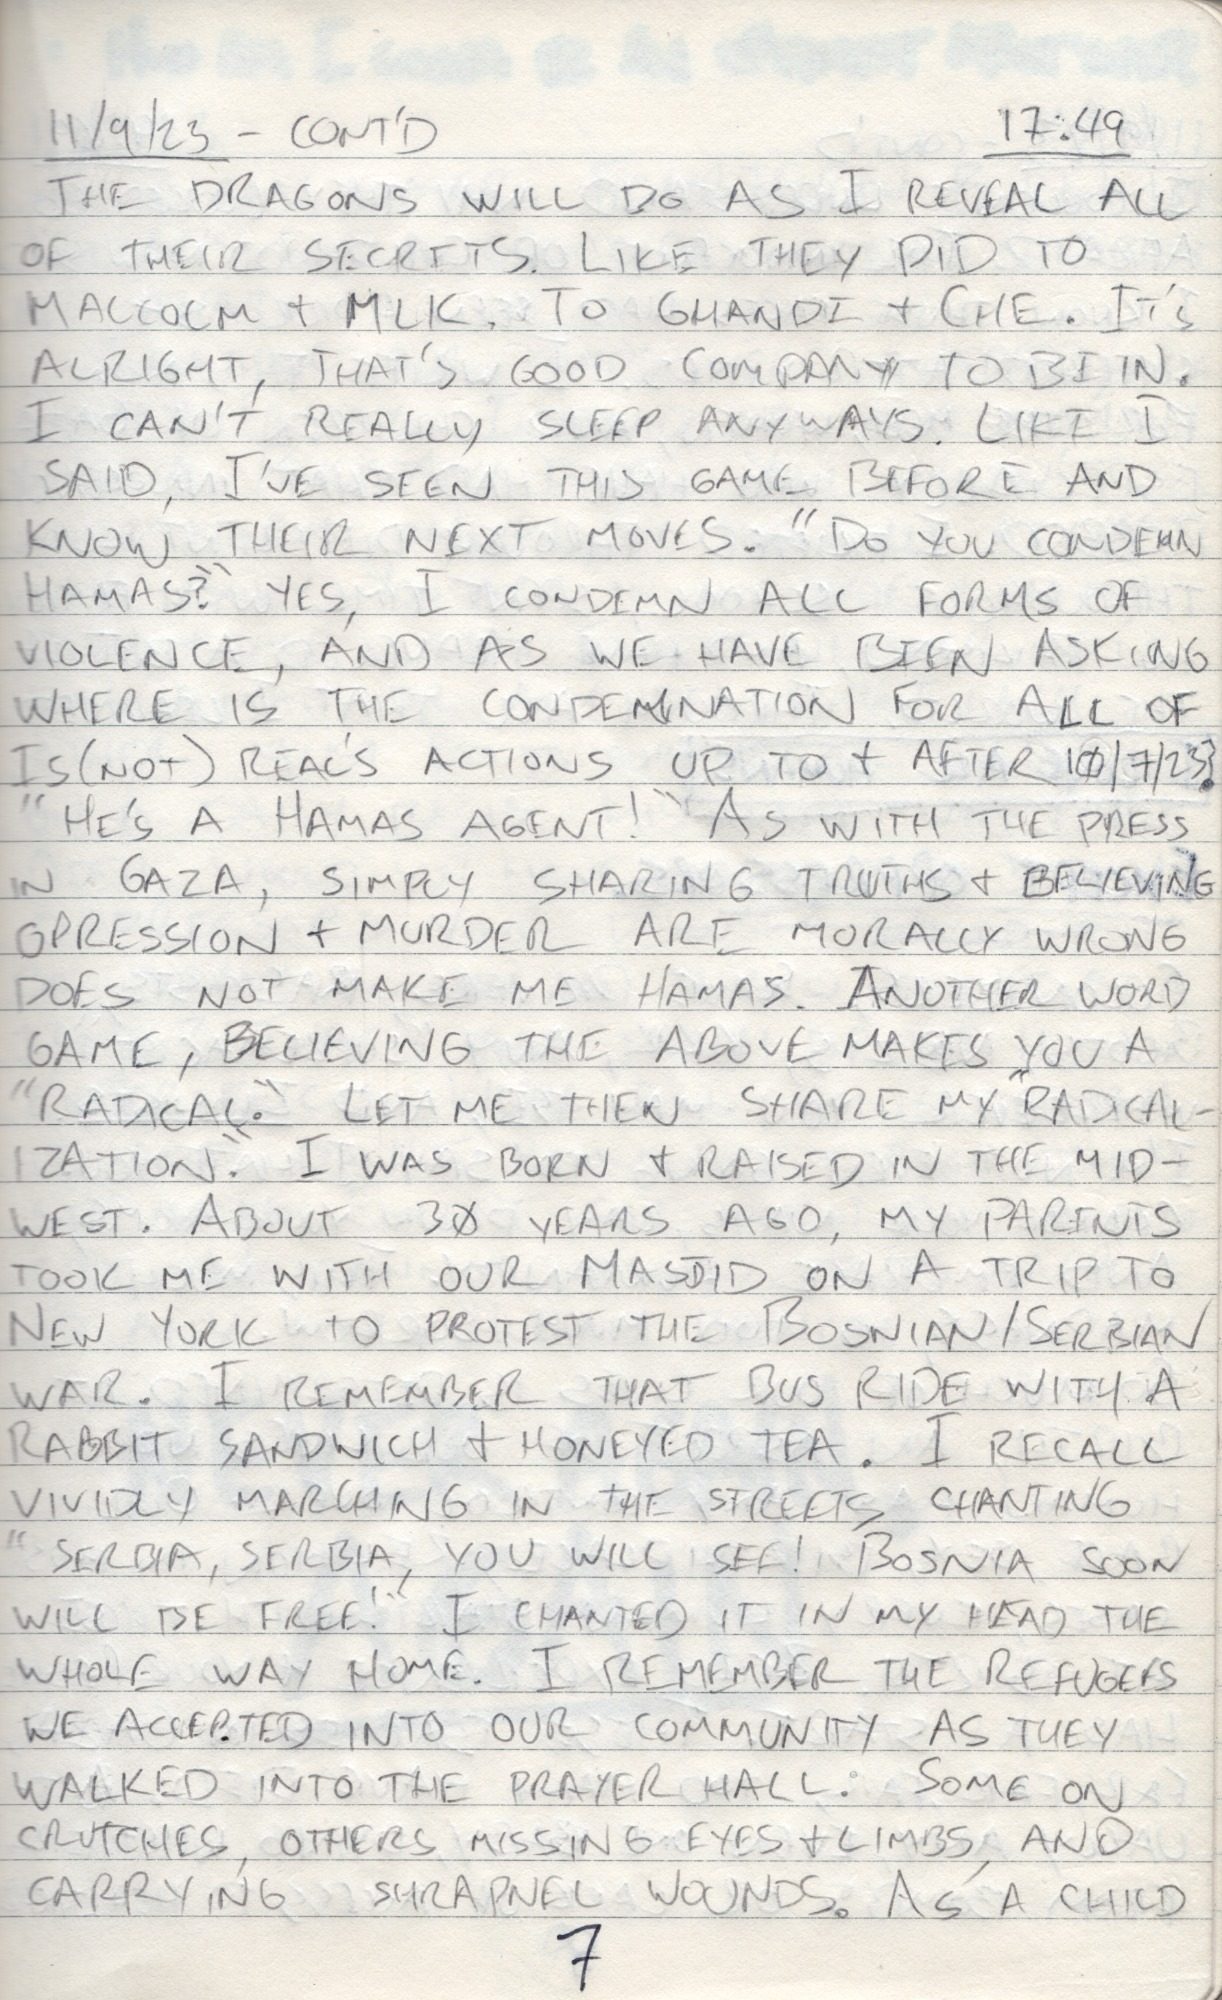 11/9/23 - CONT'D 17:49
THE DRAGONS WILL DO AS I REVEAL ALL
OF THEIR SECRETS. LIKE THEY DID TO
MALCOLM + MLK. TO GHANDI + CHE. IT'S
ALRIGHT, THAT'S GOOD COMPANY TO BE IN.
I CAN'T REALLY SLEEP ANYWAYS. LIKE I
SAID, I'VE SEEN THIS GAME BEFORE AND
KNOW THEIR NEXT MOVES. "DO YOU CONDEMN
HAMAS?" YES, I CONDEMN ALL FORMS OF
VIOLENCE, AND AS WE HAVE BEEN ASKING
WHERE IS THE CONDEMNATION FOR ALL OF
IS(NOT)REAL'S ACTIONS UP TO + AFTER 10/7/23?
"HE'S A HAMAS AGENT!" AS WITH THE PRESS
IN GAZA, SIMPLY SHARING TRUTHS + BELIEVING
OPRESSION + MURDER ARE MORALLY WRONG
DOES NOT MAKE ME HAMAS. ANOTHER WORD
GAME, BELIEVING THE ABOVE MAKES YOU A
"RADICAL." LET ME THEN SHARE MY "RADICAL-
IZATION." I WAS BORN + RAISED IN THE MID-
WEST. ABOUT 30 YEARS AGO, MY PARENTS
TOOK ME WITH OUR MASJID ON A TRIP TO
NEW YORK TO PROTEST THE BOSNIAN/SERBIAN
WAR. I REMEMBER THAT BUS RIDE WITH A
RABBIT SANDWICH + HONEYED TEA. I RECALL
VIVIDLY MARCHING IN THE STREETS CHANTING
"SERBIA, SERBIA, YOU WILL SEE! BOSNIA SOON
WILL BE FREE!" I CHANTED IT IN MY HEAD THE
WHOLE WAY HOME. I REMEMBER THE REFUGEES
WE ACCEPTED INTO OUR COMMUNITY AS THEY
WALKED INTO THE PRAYER HALL: SOME ON
CRUTCHES, OTHERS MISSING EYES + LIMBS, AND
CARRYING SHRAPNEL WOUNDS. AS A CHILD
7